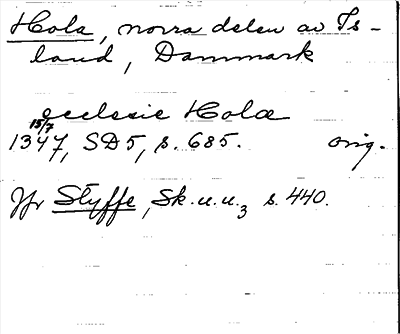 Hola, norra delen av Is-
land, Danmark
ecclesie Hola
15/7
1347, SD5, s. 685. orig.
Jfr Styffe, Sk.u.u.3 s. 440.